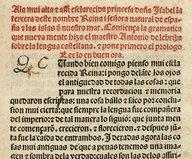 A la mui alta z assi esclarecida princesa doña Isabel la
tercera deste nombre Reina i señora natural de espa
ña z las islas de nuestro mar. Comiença la gramatica
que nueva mente hizo el maestro Antonio de lebrixa
sobre la lengua castellana. z pone primero el prologo
Leelo en buen ora.
Uando bien comigo pienso mui escla
recida Reina: i pongo delante los ojos
el antiguedad de todas las cosas: que
para nuestra recordacion z memoria
quedaron escriptas: una cosa hállo z
saco por conclusion mui cierta: que siempre la lengua fue compañera
del imperio: z de tal manera lo siguió: que junta men
te començaron. crecieron. z florecieron. z despues jũ
ta fue la caida de entrambos. I dexadas agora las co
sas mui antiguas de que a penas tenemos una ima
gen z sombra dela verdad: cuales son las delos assi